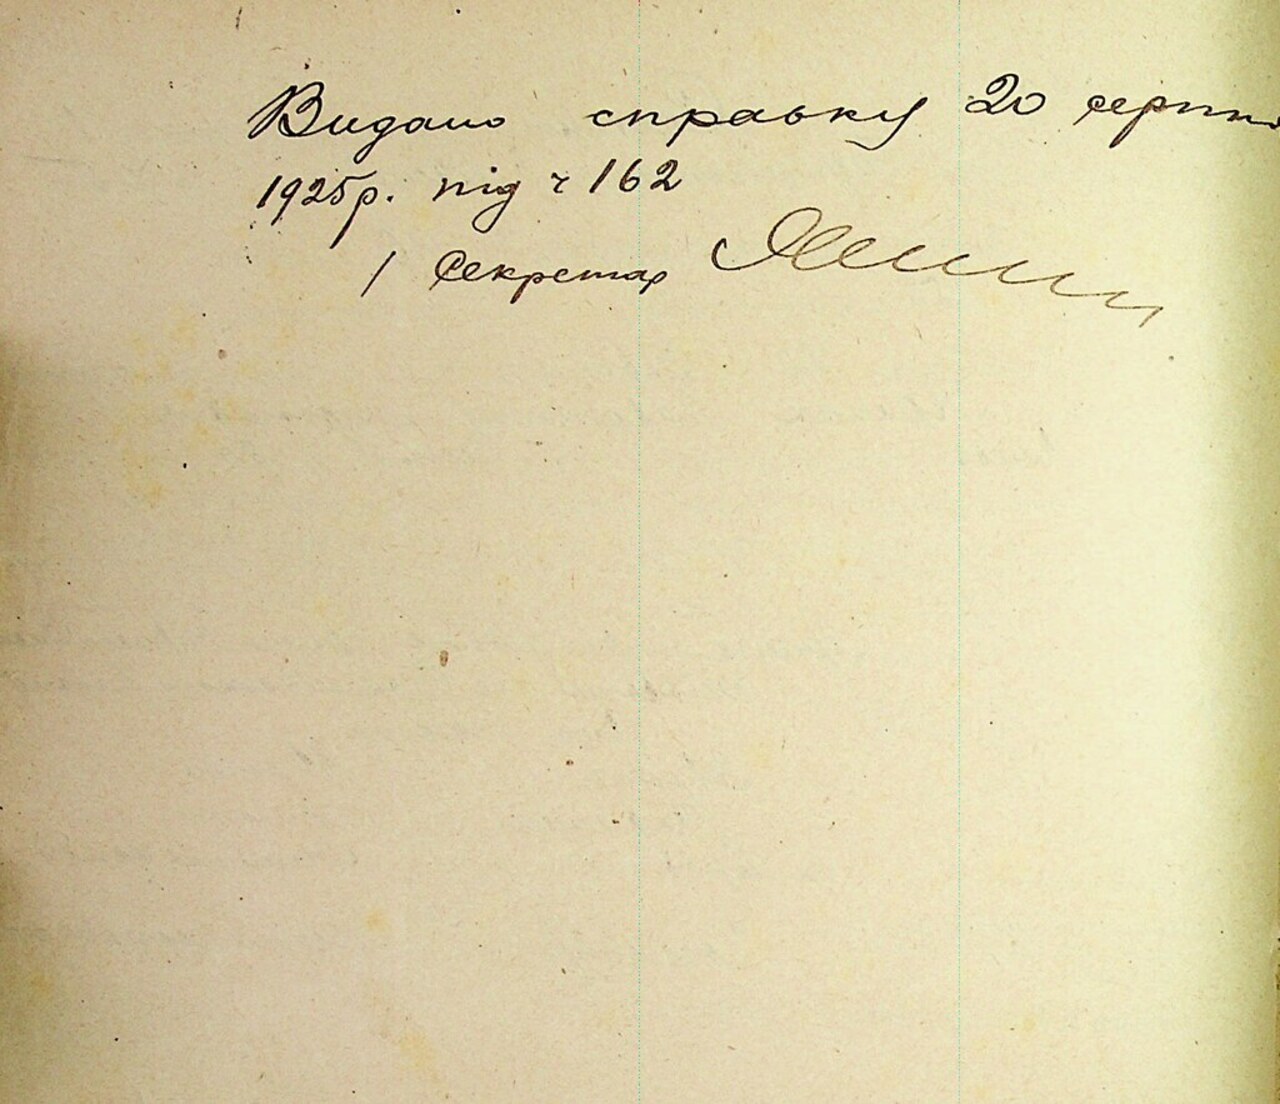 Видано справку 20 серпня
1925р. під ч 162
/ Секретар